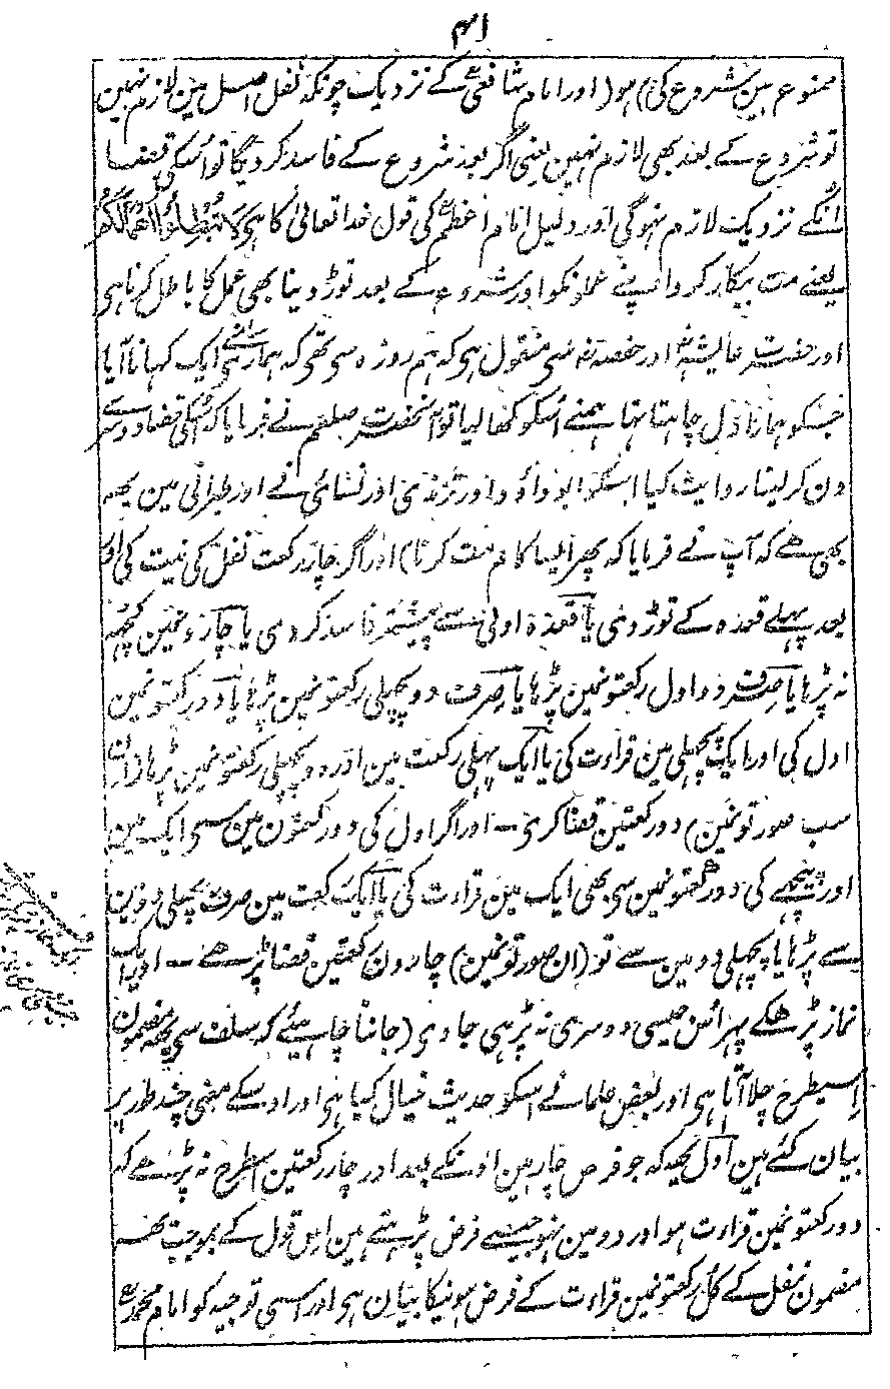 ۱۴۱
ممنوع ہین شروع کی) ہو (اور امام شافعیؒ کے نزدیک چونکہ نفل اصل مین لازم نہین
تو شروع کے بعد بھی لازم نہین یعنی اگر بعد شروع کے فاسد کردیگا تو اُسکی قضا
اُنکے نزدیک لازم نہوگی اور دلیل امام اعظمؒ کی قول خدا تعالیٰ کا ہی وَلَا تُبْطِلُوْا اَعْمَالَكُمْ
یعنے مت بیکار کرو اپنے عملونکو اور شروع کے بعد توڑ دینا بھی عمل کا باطل کرنا ہی
اور حضرت عایشہؓ اور حفصہؓ سی منقول ہی کہ ہم روزہ سی تھی کہ ہماری سامنے ایک کہانا آیا
جسکو ہمارا دل چاہتا تہا ہمنے اُسکو کھا لیا تو آنحضرت صلعم نے فرمایا کہ اُسکی قضا دوسرے
دن کر لینا روایت کیا اسکو ابو داؤد اور ترمذی اور نسائی نے اور طبرانی مین یہ
بھی ہے کہ آپ نے فرمایا کہ پھر ایسا کام مت کرنا) اور اگر چار رکعت نفل کی نیت کی اور
بعد پہلے قعدہ کے توڑ دی یا قعدۂ اولی سے پیشتر فاسد کر دی یا چارونمین کچھہ
نہ پڑہا یا صرف دو اول رکعتونمین پڑہا یا صرف دو پچھلی رکعتونمین پڑہا یا دو رکعتونمین
اول کی اور ایک پچھلی مین قراءت کی یا ایک پہلی رکعت مین اور دو پچھلی رکعتونمین پڑہا (ان
سب صورتونمین) دو رکعتین قضا کری ۔ اور اگر اول کی دو رکعتون مین سی ایک مین
اور پیچھے کی دو رکعتونمین سی بھی ایک مین قراءت کی یا ایک رکعت مین صرف پہلی دو مین
سے پڑہا یا پچھلی دو مین سے تو (ان صورتونمین) چارون رکعتین قضا پڑھے ۔ اور ایک
نماز پڑھکے پہر اُس جیسی دوسری نہ پڑہی جاوی (جاننا چاہیئے کہ سلف سی یہ مضمون
اسیطرح چلا آتا ہی اور بعض علما نے اسکو حدیث خیال کیا ہی اور اوسکے معنی چند طور پر
بیان کئے ہین اول یہ کہ جو فرض چار ہین اونکے بعد اور چار رکعتین اسطرح نہ پڑھے کہ
دو رکعتونمین قراءت ہو اور دو مین نہو جیسے فرض پڑہتے ہین اس قول کے بموجب یہ
مضمون نفل کے کل رکعتونمین قراءت کے فرض ہونیکا بیان ہی اور اسی توجیہ کو امام محمدؒ